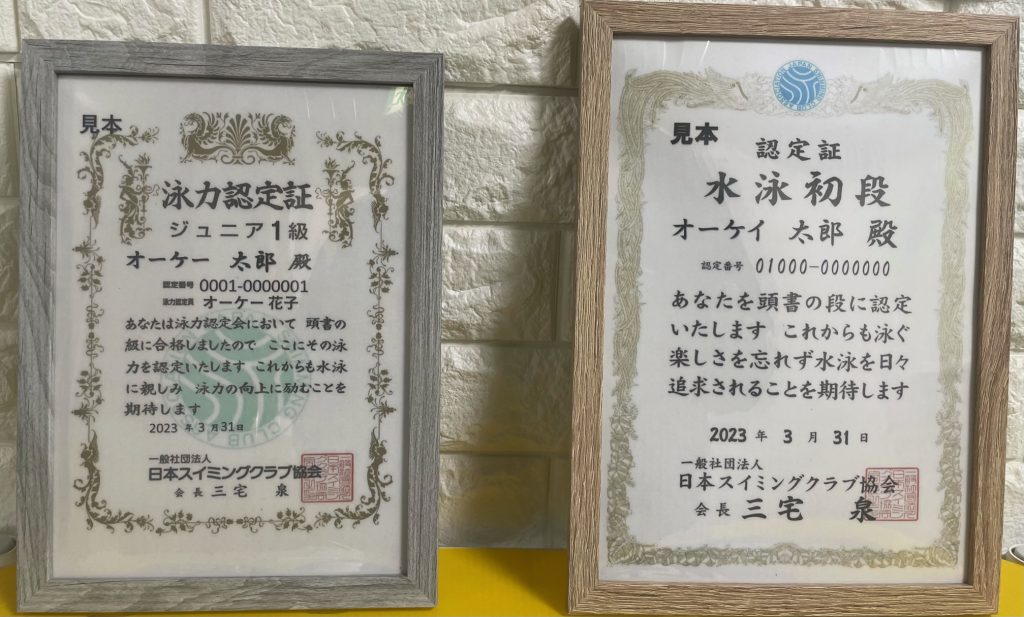 見本
泳力認定証
ジュニア1級
オーケー 太郎 殿
認定番号 0001-0000001
泳力認定員 オーケー 花子
あなたは泳力認定会において 頭書の
級に合格しましたので ここにその泳
力を認定いたします これからも水泳
に親しみ 泳力の向上に励むことを
期待します
2023 年 3 月 31日
一般社団法人
日本スイミングクラブ協会
会長 三宅 泉
見本
認定証
水泳初段
オーケイ 太郎 殿
認定番号 01000-0000000
あなたを頭書の段に認定
いたします これからも泳ぐ
楽しさを忘れず水泳を日々
追求されることを期待します
2023 年 3 月 31 日
一般社団法人
日本スイミングクラブ協会
会長 三宅 泉